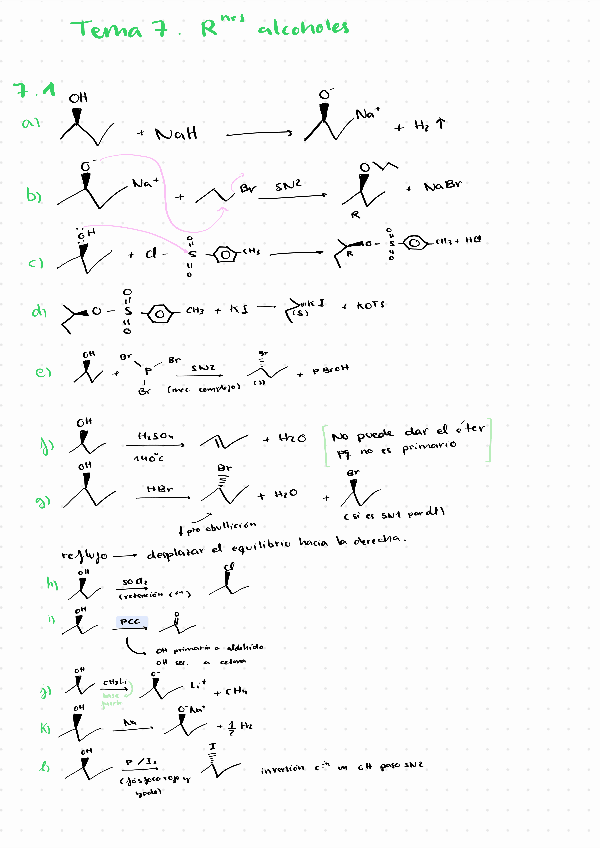 Tema 7. R^nes alcoholes
7.1
a) OH + NaH → O⁻ Na⁺ + H₂ ↑
b) O⁻ Na⁺ + Br SN2 O R + NaBr
c) :ÖH + Cl - O S O CH₃ → O - O S O CH₃ + HCl R
d) O - O S O CH₃ + KI — I (S) + KOTs
e) OH + Br P Br Br SN2 (mec. complejo) Br (S) + PBr₂OH
f) OH H₂SO₄ 140°C + H₂O [No puede dar el éter
pq no es primario]
g) OH HBr → Br + H₂O + Br
(si es SN1 parcial)
↓ pto ebullición
reflujo → desplazar el equilibrio hacia la derecha.
h) OH SOCl₂ (retención) Cl
i) OH PCC O
OH primario a aldehído
OH sec. a cetona
j) OH CH₃Li base fuerte O⁻ Li⁺ + CH₄
k) OH Na O⁻Na⁺ + 1/2 H₂
l) OH P / I₂ I inversión
(fósforo rojo y
yodo)